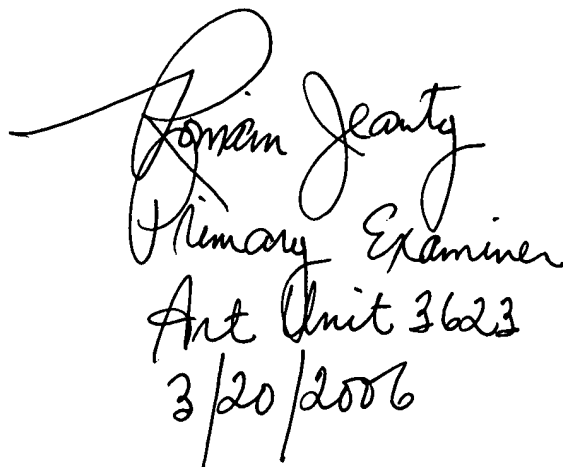 Romain Jeanty
Primary Examiner
Art Unit 3623
3/20/2006